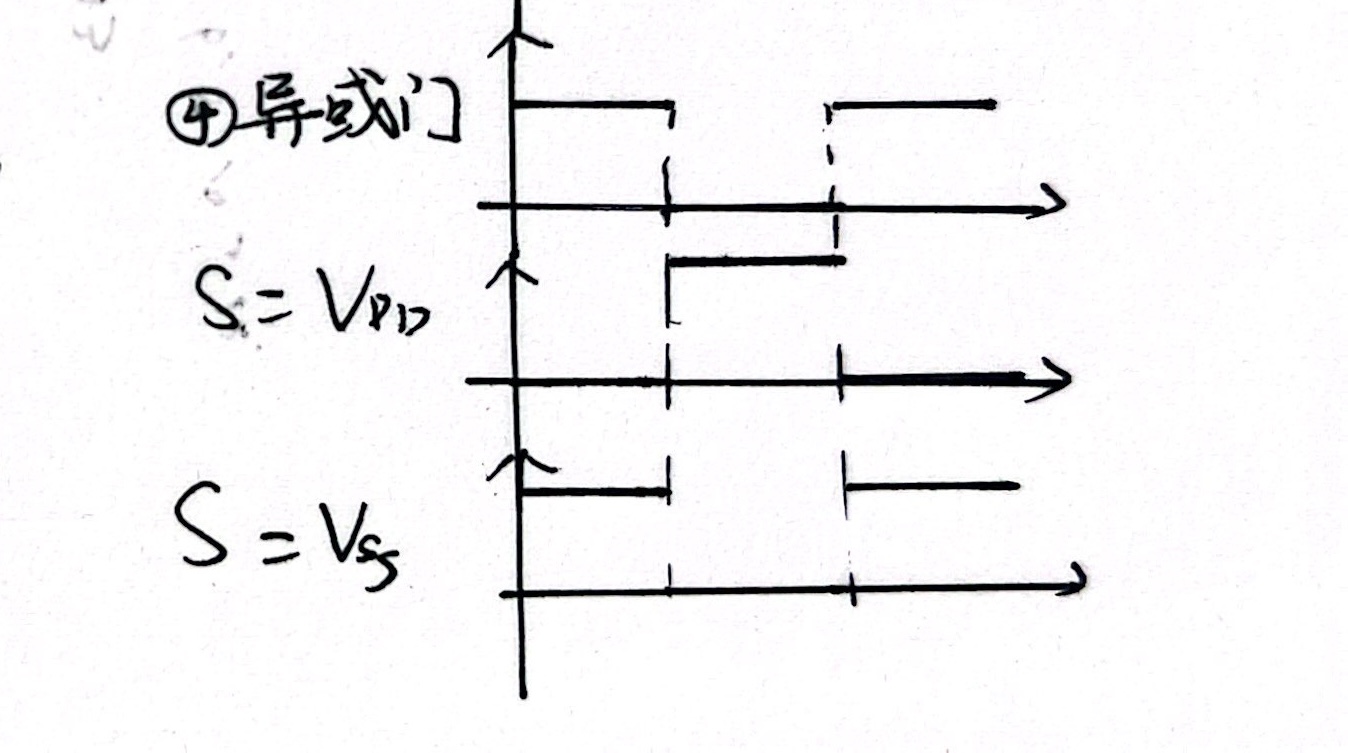 ④异或门
S = VDD
S = VSS